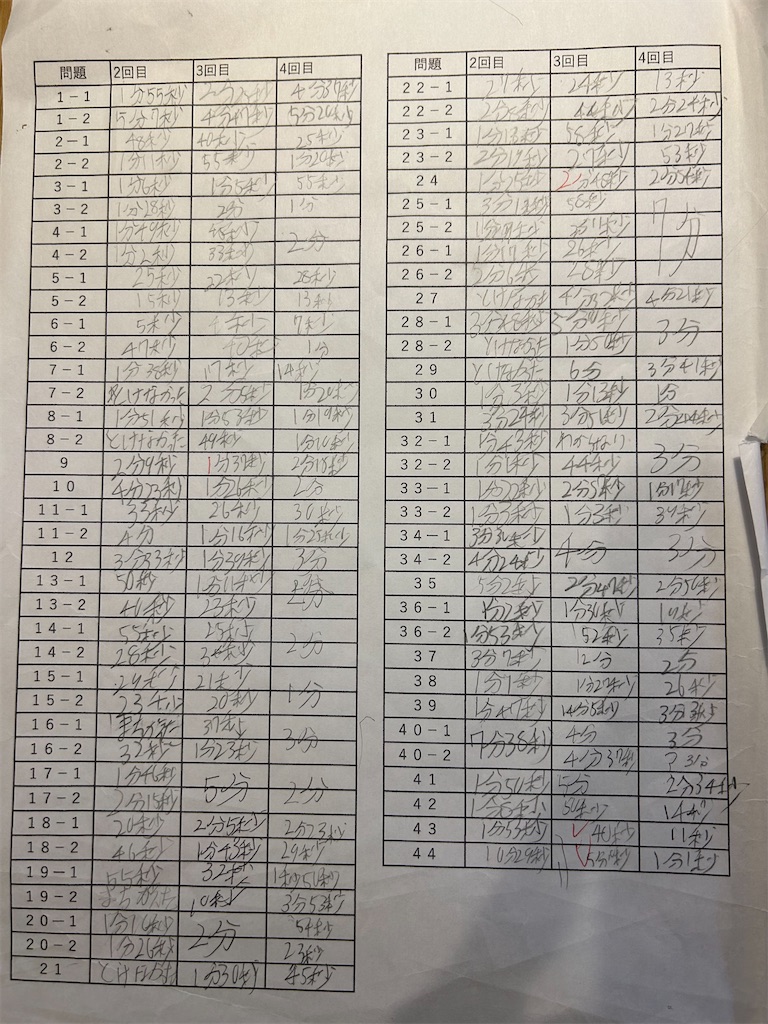 問題 2回目 3回目 4回目
1-1 1分55秒 2分22秒 4分37秒
1-2 5分7秒 4分47秒 5分20秒
2-1 48秒 40秒 25秒
2-2 1分11秒 55秒 1分20秒
3-1 1分6秒 1分5秒 55秒
3-2 1分28秒 2分 1分
4-1 1分49秒 2分
4-2 33秒
5-1 25秒 22秒 28秒
5-2 15秒 13秒 13秒
6-1 5秒 7秒
6-2 47秒 40秒 1分
7-1 1分38秒 17秒 14秒
7-2 とけなかった 1分20秒
8-1 1分51秒 1分53秒 1分19秒
8-2 とけなかった 49秒 1分10秒
9 2分9秒 1分37秒 2分18秒
10 4分22秒 1分26秒 2分
11-1 33秒 26秒 30秒
11-2 4分 1分16秒 1分25秒
12 3分33秒 1分39秒 3分
13-1 50秒 1分11秒 2分
13-2 23秒
14-1 55秒 25秒 2分
14-2 28秒
15-1 29秒 21秒 1分
15-2 23秒 20秒
16-1 37秒 3分
16-2 32秒 1分23秒
17-1 1分46秒 5分 2分
17-2 2分15秒
18-1 20秒 2分5秒 2分23秒
18-2 46秒 1分43秒 29秒
19-1 55秒 32秒 1秒51秒
19-2 まちがえた 10秒 3分53秒
20-1 1分16秒 2分 54秒
20-2 1分26秒 23秒
21 とけなかった 1分30秒 45秒
問題 2回目 3回目 4回目
22-1 27秒 24秒 13秒
22-2 44秒 2分24秒
23-1 1分13秒 58秒 1分27秒
23-2 2分19秒 27秒 53秒
24 1分25秒 2分48秒 2分54秒
25-1 3分13秒 58秒 7分
25-2
26-1 1分17秒 26秒
26-2 2分6秒 28秒
27 とけなかった 4分21秒
28-1 3分48秒 3分
28-2 とけなかった 1分50秒
29 とけなかった 6分 3分41秒
30 1分3秒 1分13秒 1分
31 3分24秒 3分51秒
32-1 1分43秒 わからない 3分
32-2 44秒
33-1 1分22秒 2分5秒 1分17秒
33-2 1分3秒 1分3秒 39秒
34-1 3分34秒 4分 3分
34-2 4分24秒
35 5分2秒 2分47秒 2分56秒
36-1 1分2秒 1分36秒 19秒
36-2 1分53秒 52秒 35秒
37 3分7秒 12分 2分
38 1分7秒 1分27秒 26秒
39 1分47秒 14分5秒 3分3秒
40-1 7分36秒 4分 3分
40-2 4分37秒
41 1分50秒 5分 2分34秒
42 14秒
43 1分53秒 40秒 11秒
44 10分29秒 1分1秒